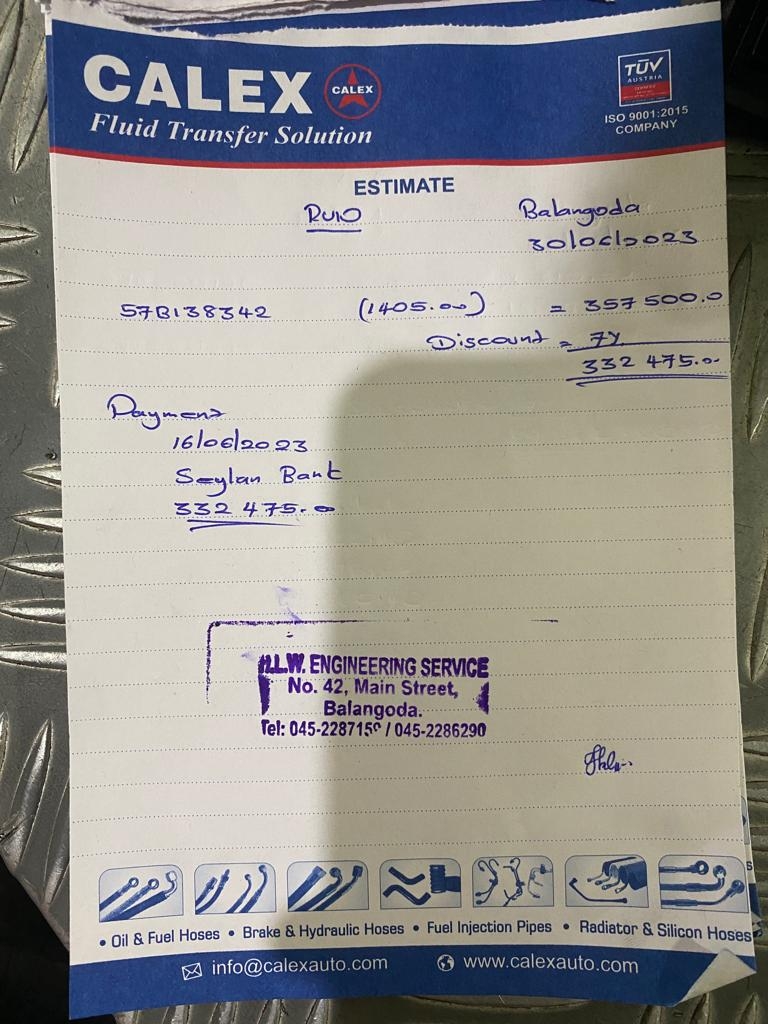 CALEX CALEX
Fluid Transfer Solution
TÜV
AUSTRIA
ISO 9001:2015
COMPANY
ESTIMATE
Balangoda
30/06/2023
57B138342 (1405.00) = 357 500.0
Discount = 7%
332 475.00
Payment
16/06/2023
Seylan Bank
332 475.00
H.L.W. ENGINEERING SERVICE
No. 42, Main Street,
Balangoda.
Tel: 045-2287159 / 045-2286290
• Oil & Fuel Hoses • Brake & Hydraulic Hoses • Fuel Injection Pipes • Radiator & Silicon Hoses
info@calexauto.com www.calexauto.com